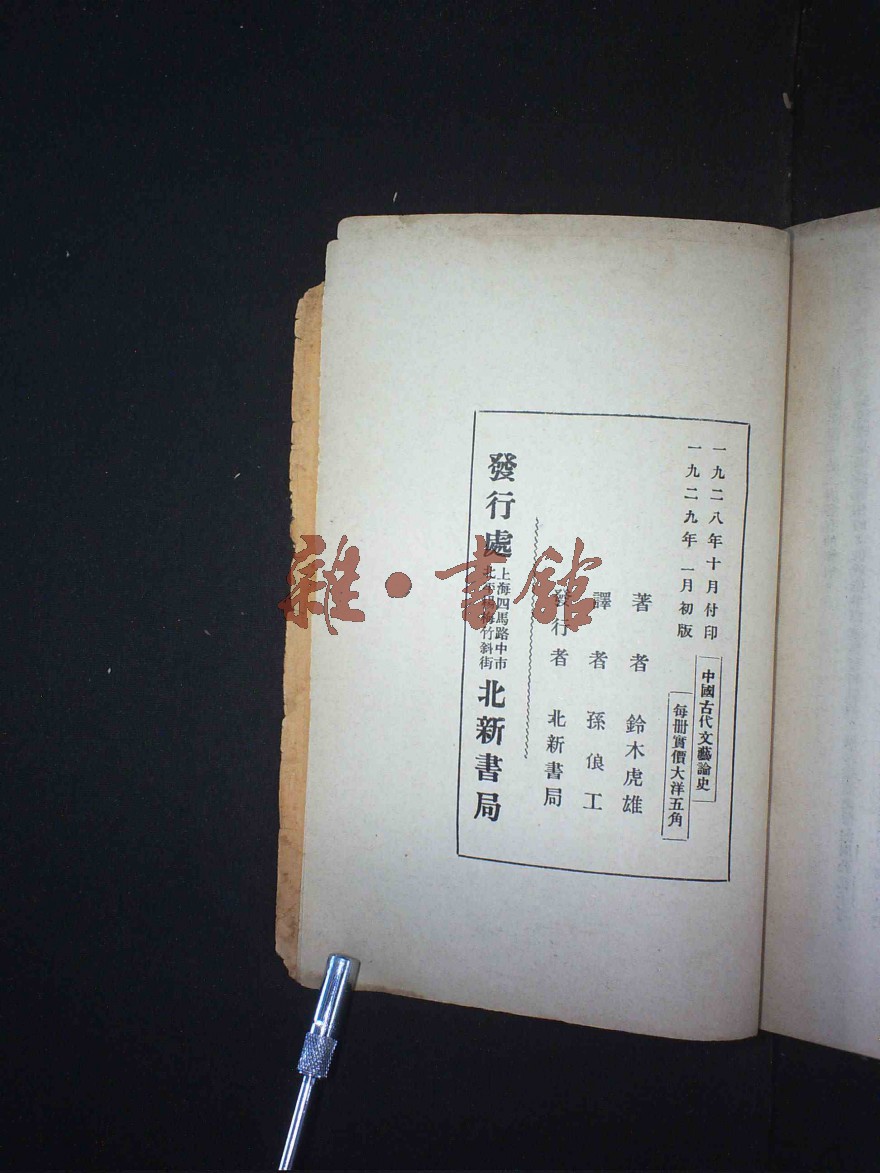 一九二八年十月付印
一九二九年一月初版
中國古代文藝論史
每冊實價大洋五角
著者 鈴木虎雄
譯者 孫俍工
發行者 北新書局
發行處
上海四馬路中市
北平楊梅竹斜街
北新書局
雜·書館